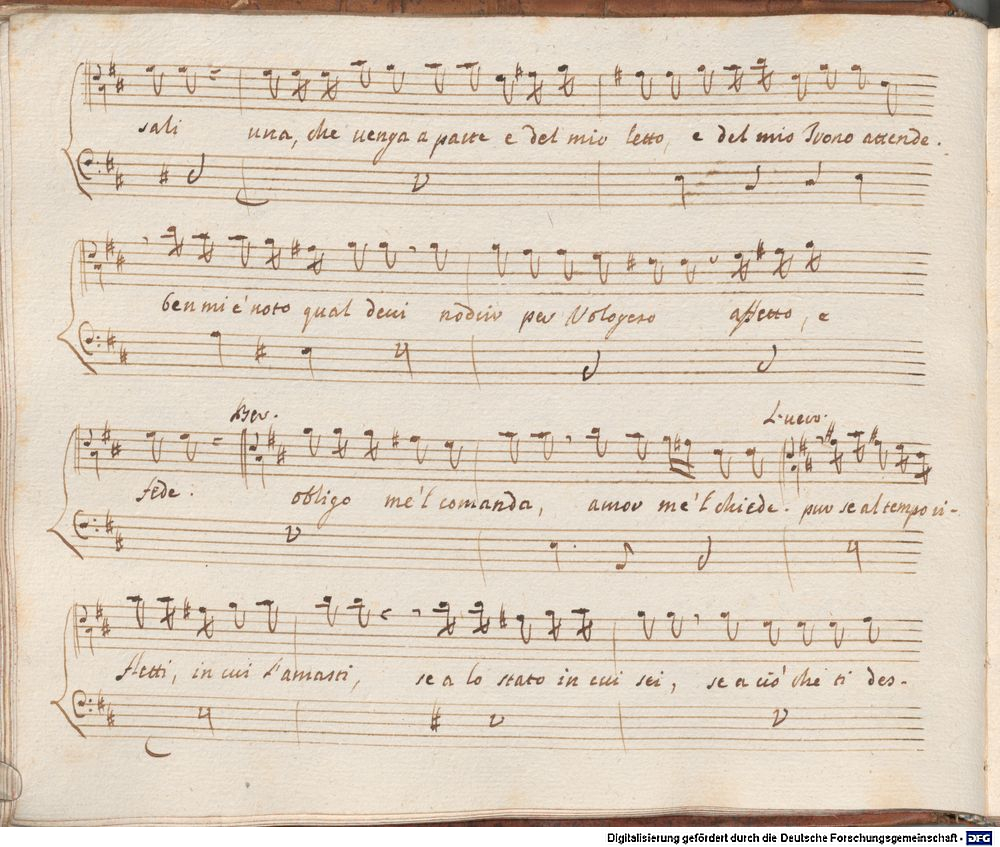 sali una, che venga a parte e del mio letto, e del mio Trono attende.
ben mi è noto qual devi nodrir per Vologeso affetto, e
Ber. L. vero.
fede. obligo me'l comanda, amor me'l chiede. pur se al tempo ri-
fletti, in cui l'amasti, se a lo stato in cui sei, se a ciò che ti des-
Digitalisierung gefördert durch die Deutsche Forschungsgemeinschaft - DFG